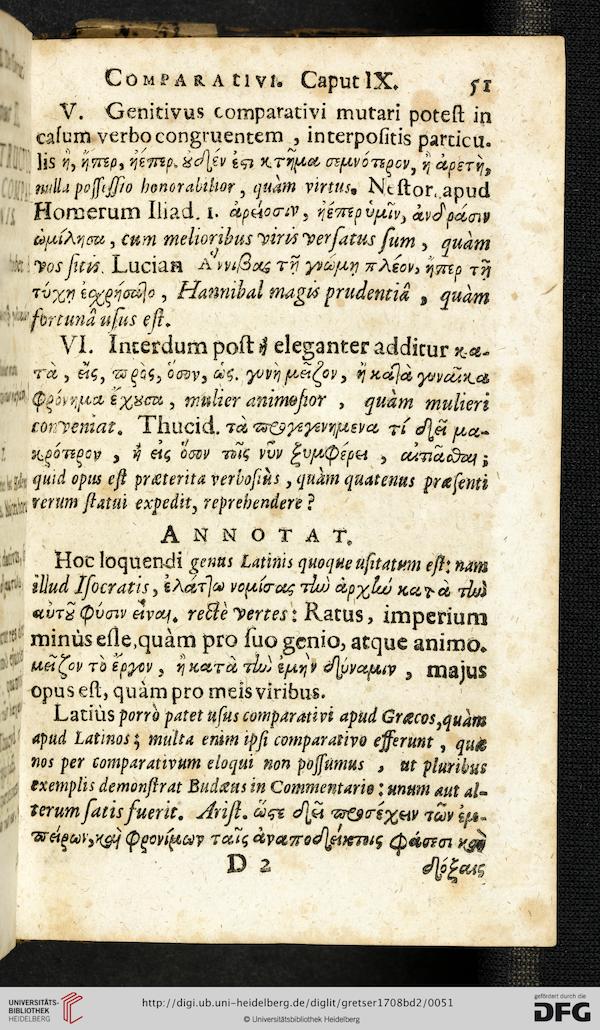 COMPARATIVI. Caput IX. 51
V. Genitivus comparativi mutari potest in
casum verbo congruentem, interpositis particu-
lis ἢ, ἤπερ, ἠέπερ. ȣ̓δέν ἐςι κτῆμα σεμνότερον, ἢ ἀρετὴ,
nulla possessio honorabilior, quàm virtus. Nestor. apud
Homerum Iliad. 1. ἀρείοσιν, ἠέπερ ὑμῖν, ἀνδράσιν
ὡμίλησα, cum melioribus viris versatus sum, quàm
vos sitis. Lucian Ἀννίβας τῇ γνώμῃ πλέον, ἤπερ τῇ
τύχῃ ἐχρήσατο, Hannibal magis prudentiâ, quàm
fortunâ usus est.
VI. Interdum post ἢ eleganter additur κα-
τὰ, εἰς, πρὸς, ὅσον, ὡς. γυνὴ μεῖζον, ἢ κατὰ γυναῖκα
φρόνημα ἔχȣσα, mulier animosior, quàm mulieri
conveniat. Thucid. τὰ προγεγενημενα τί δεῖ μα-
κρότερον, ἢ εἰς ὅσον τοῖς νῦν ξυμφέρει, αἰτιᾶσθαι;
quid opus est præterita verbosiùs, quàm quatenus præsenti
rerum statui expedit, reprehendere?
ANNOTAT.
Hoc loquendi genus Latinis quoque usitatum est: nam
illud Isocratis, ἐλάττω νομίσας τὴν ἀρχὴν κατὰ τὴν
αὑτȣ͂ φύσιν εἶναι. rectè vertes: Ratus, imperium
minùs esse, quàm pro suo genio, atque animo.
μεῖζον τὸ ἔργον, ἢ κατὰ τὴν ἐμὴν δύναμιν, majus
opus est, quàm pro meis viribus.
Latiùs porrò patet usus comparativi apud Græcos, quàm
apud Latinos; multa enim ipsi comparativo efferunt, quæ
nos per comparativum eloqui non possumus, ut pluribus
exemplis demonstrat Budæus in Commentario: unum aut al-
terum satis fuerit. Arist. ὥςε δεῖ προσέχειν τῶν ἐμ-
πείρων, καὶ φρονίμων ταῖς ἀναποδείκτοις φάσεσι καὶ
D 2 δόξαις
UNIVERSITÄTS-
BIBLIOTHEK
HEIDELBERG
http://digi.ub.uni-heidelberg.de/diglit/gretser1708bd2/0051
© Universitätsbibliothek Heidelberg
gefördert durch die
DFG